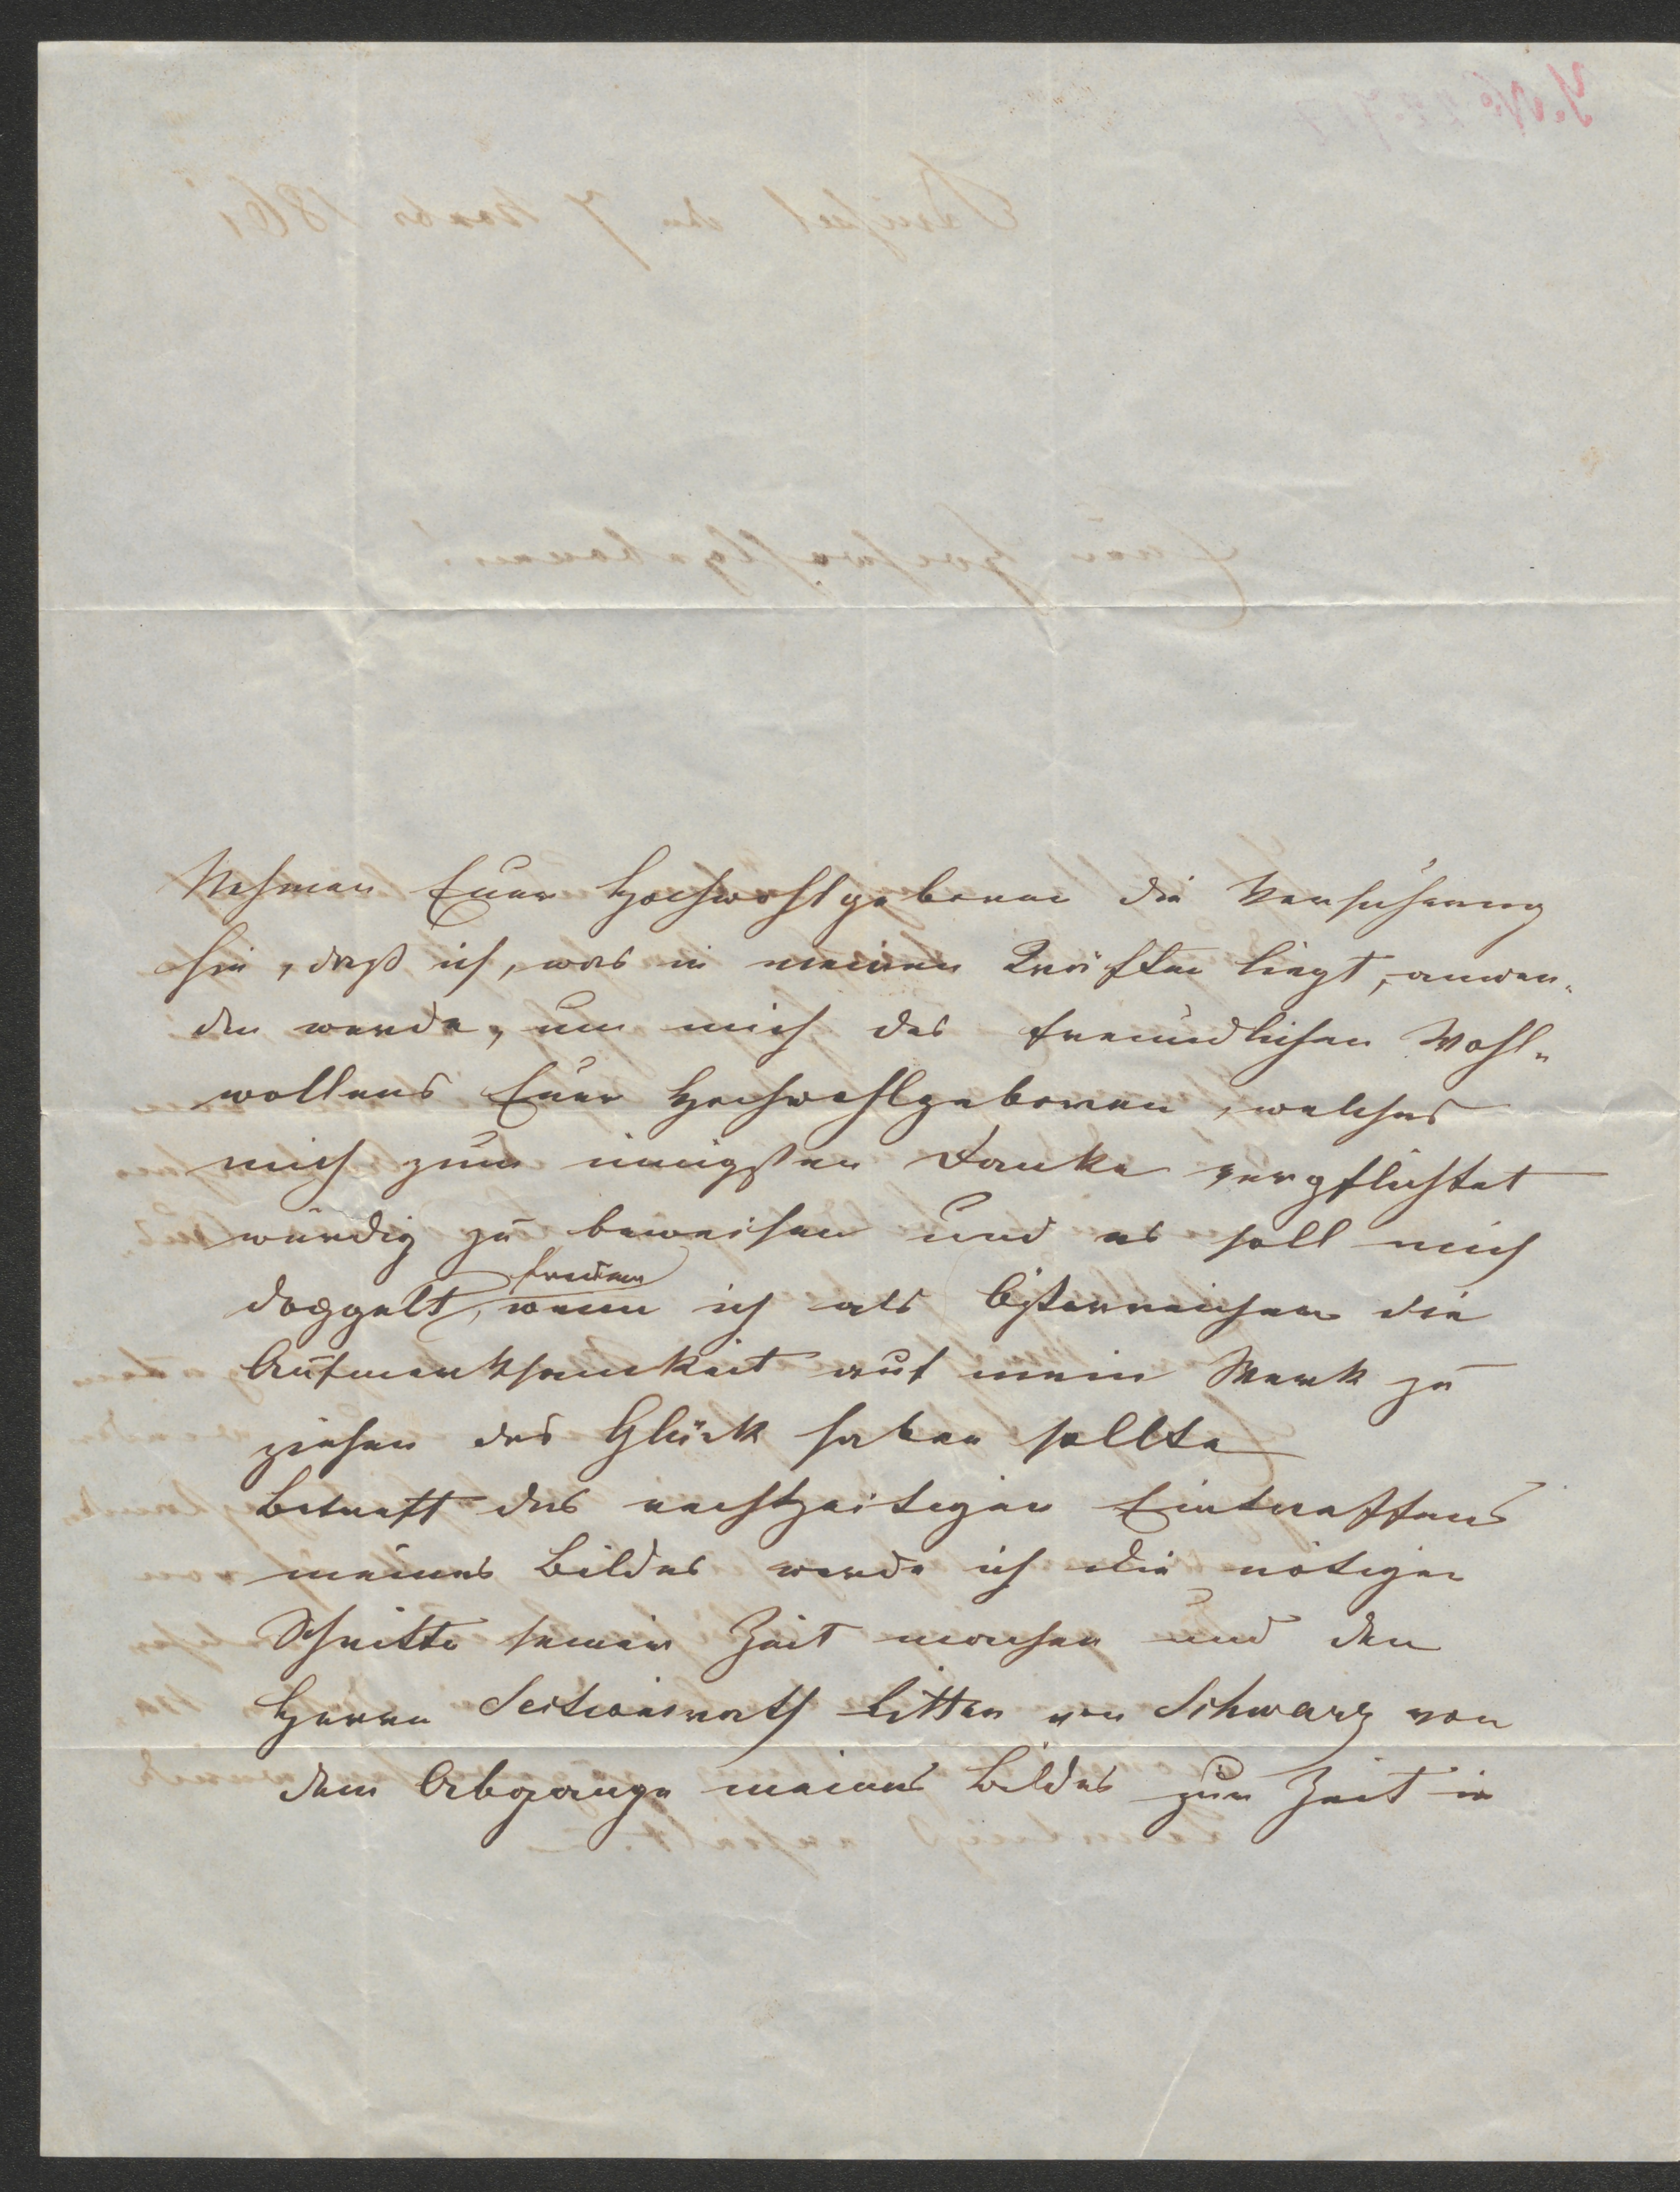 Nehmen Euer Hochwohlgeboren die Versicherung
hin, daß ich, was in meinen Kräften liegt, anwen-
den werde, um mich des freundlichen Wohl-
wollens Euer Hochwohlgeboren, welches
mich zum innigsten Danke verpflichtet
würdig zu beweisen und es soll mich
doppelt freuen, wenn ich als Östereicher die
Aufmerksamkeit auf mein Werk zu
ziehen das Glück haben sollte
Betreff des rechtzeitigen Eintreffens
meines Bildes werde ich die nötigen
Schritte seiner Zeit machen und den
Herrn Sectionsrath Ritter von Schwarz von
dem Abgange meines Bildes zur Zeit in